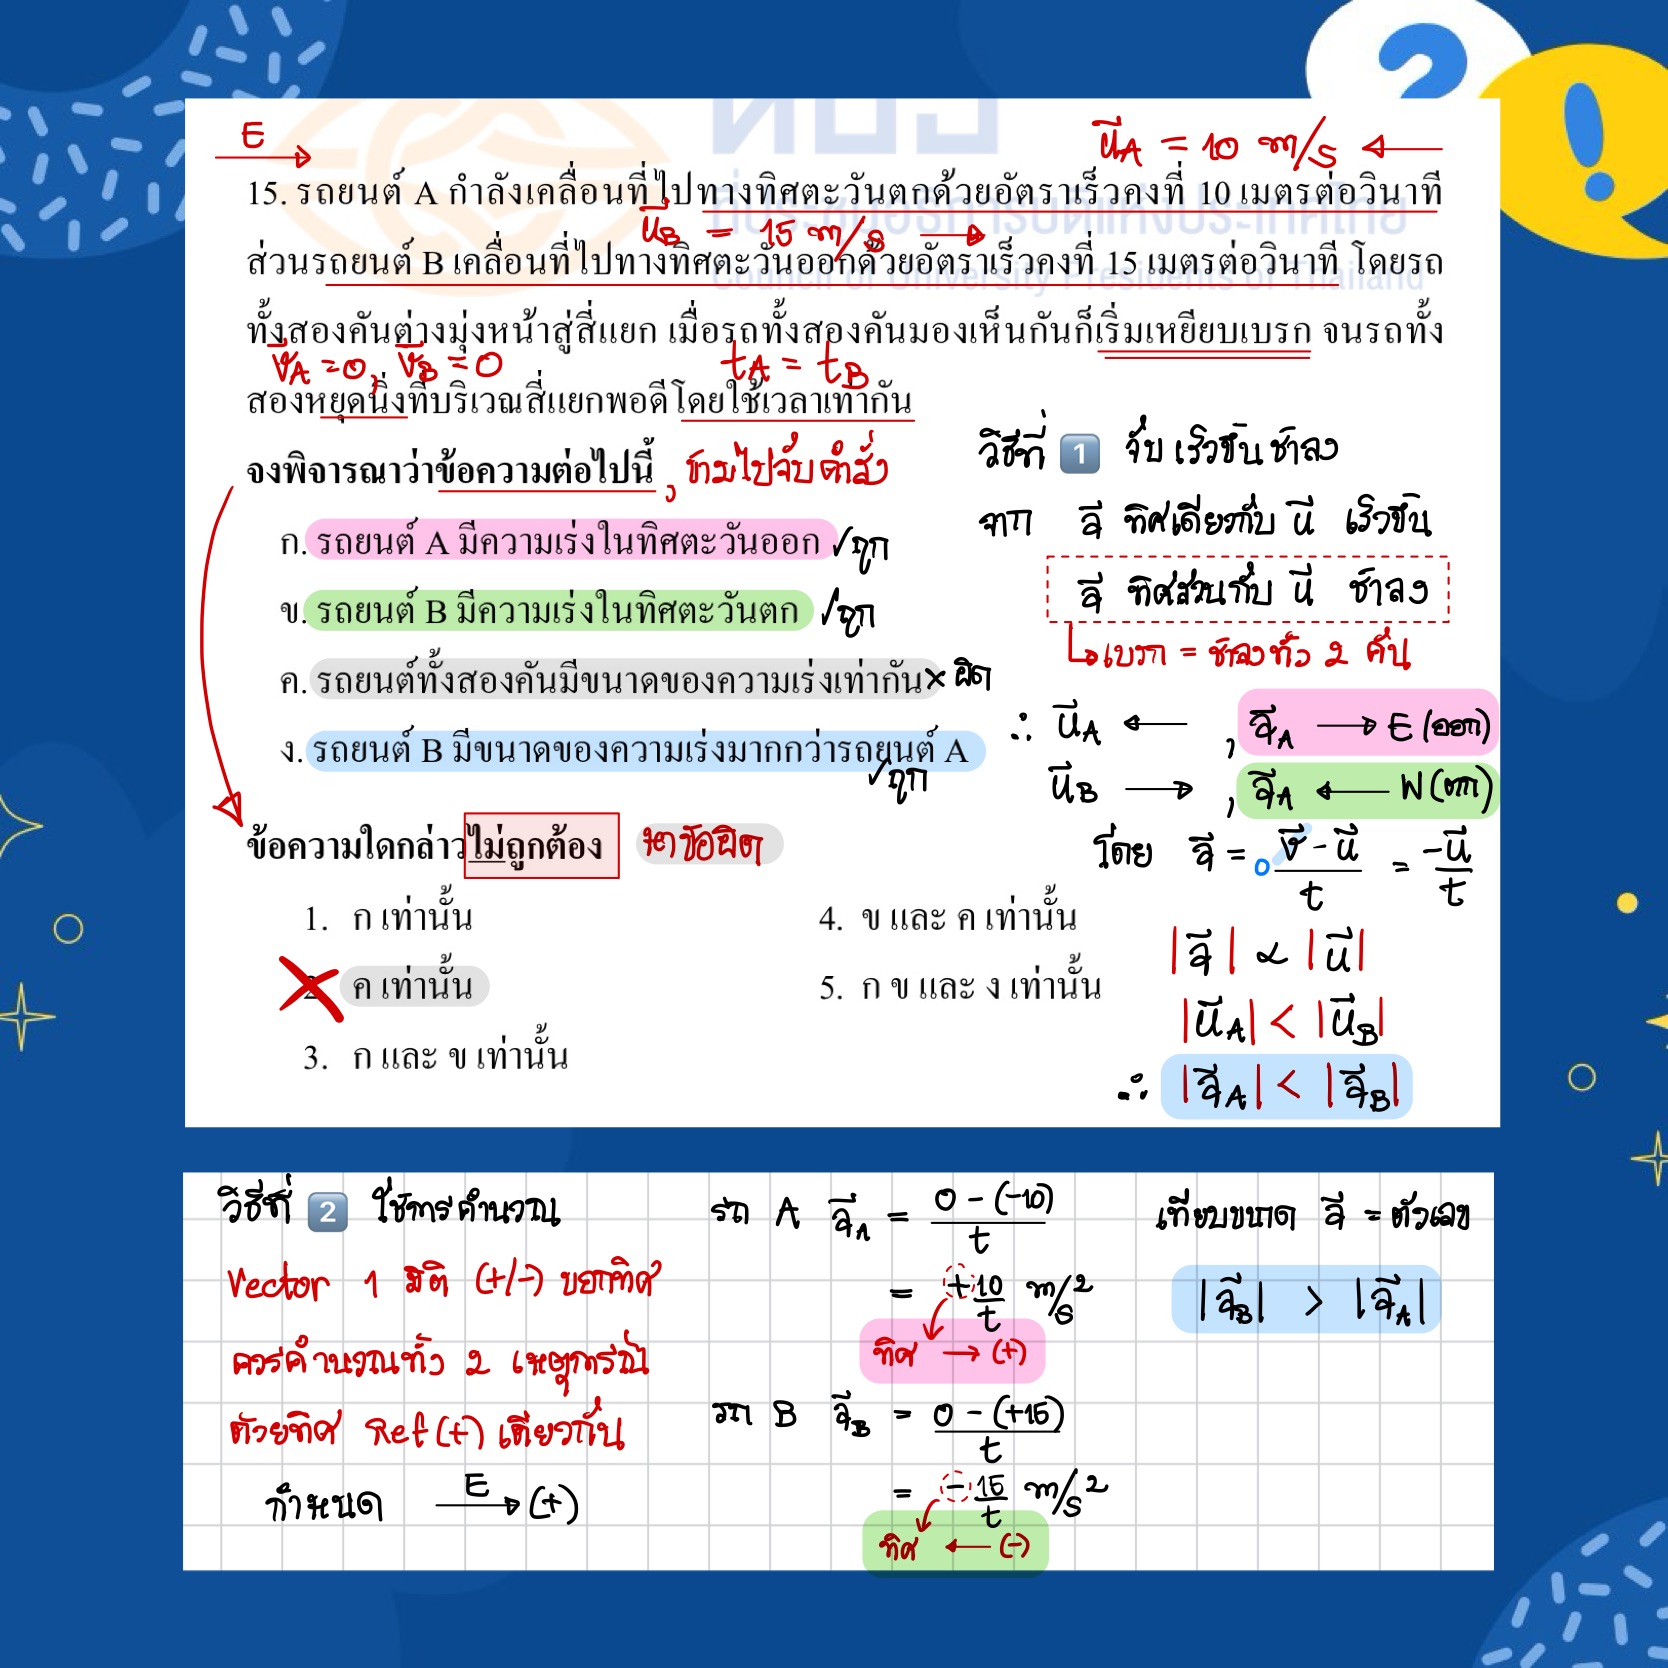 E
ū_A = 10 m/s ←
15. รถยนต์ A กำลังเคลื่อนที่ไปทางทิศตะวันตกด้วยอัตราเร็วคงที่ 10 เมตรต่อวินาที
ū_B = 15 m/s →
ส่วนรถยนต์ B เคลื่อนที่ไปทางทิศตะวันออกด้วยอัตราเร็วคงที่ 15 เมตรต่อวินาที โดยรถ
ที่ประชุมอธิการบดีแห่งประเทศไทย
Council of University Presidents of Thailand
ทั้งสองคันต่างมุ่งหน้าสู่สี่แยก เมื่อรถทั้งสองคันมองเห็นกันก็เริ่มเหยียบเบรก จนรถทั้ง
v̄_A = 0, v̄_B = 0 t_A = t_B
สองหยุดนิ่งที่บริเวณสี่แยกพอดีโดยใช้เวลาเท่ากัน
จงพิจารณาว่าข้อความต่อไปนี้ , ข้ามไปจับคำสั่ง
ก. รถยนต์ A มีความเร่งในทิศตะวันออก ✓ถูก
ข. รถยนต์ B มีความเร่งในทิศตะวันตก ✓ถูก
ค. รถยนต์ทั้งสองคันมีขนาดของความเร่งเท่ากัน × ผิด
ง. รถยนต์ B มีขนาดของความเร่งมากกว่ารถยนต์ A
✓ถูก
ข้อความใดกล่าวไม่ถูกต้อง หาข้อผิด
1. ก เท่านั้น
2. ค เท่านั้น
3. ก และ ข เท่านั้น
4. ข และ ค เท่านั้น
5. ก ข และ ง เท่านั้น
วิธีที่ 1 จับ เร็วขึ้น ช้าลง
จาก ā ทิศเดียวกับ ū เร็วขึ้น
ā ทิศสวนกับ ū ช้าลง
↳ เบรก = ช้าลงทั้ง 2 คัน
∴ ū_A ← , ā_A → E (ออก)
ū_B → , ā_A ← W (ตก)
โดย ā = (v̄ - ū)/t = -ū/t
0
|ā| ∝ |ū|
|ū_A| < |ū_B|
∴ |ā_A| < |ā_B|
วิธีที่ 2 ใช้การคำนวณ
Vector 1 มิติ (+/-) บอกทิศ
ควรคำนวณทั้ง 2 เหตุการณ์
ด้วยทิศ Ref (+) เดียวกัน
กำหนด E → (+)
รถ A ā_A = (0 - (-10))/t
= +10/t m/s²
ทิศ → (+)
รถ B ā_B = (0 - (+15))/t
= -15/t m/s²
ทิศ ← (-)
เทียบขนาด ā = ตัวเลข
|ā_B| > |ā_A|